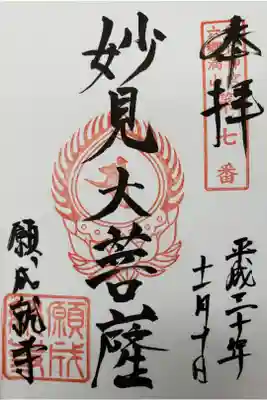 奉拝
七番
妙見大菩薩
平成二十年
十一月十日
願成就寺
願成